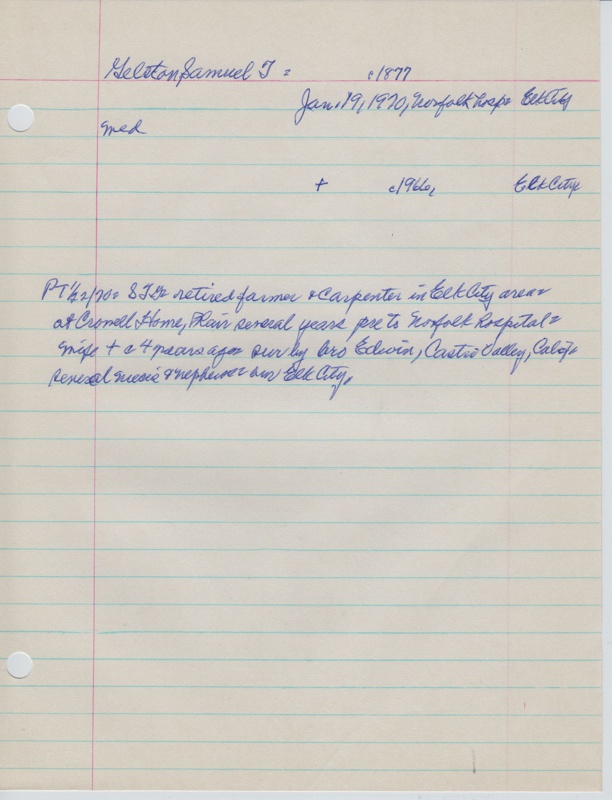 Gelston Samuel T = c1877
Jan. 19, 1970, Norfolk hosp = Elk City
med
+ c1966, Elk City
PT 1/22/70 = STG = retired farmer & carpenter in Elk City area =
at Crowell Home, Blair several years pre to Norfolk hospital =
wife + c 4 years ago = sur by bro Edwin, Castro Valley, Calif =
several niece & nephews = bur Elk City.